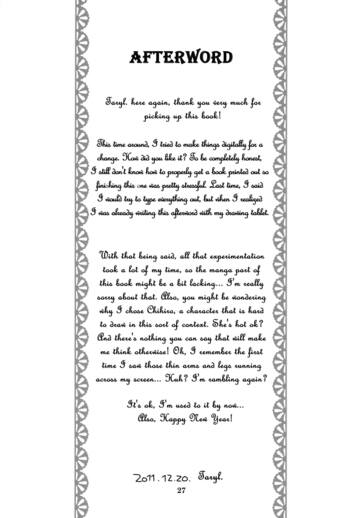 AFTERWORD
Taryl. here again, thank you very much for
picking up this book!
This time around, I tried to make things digitally for a
change. How did you like it? To be completely honest,
I still don't know how to properly get a book printed out so
finishing this one was pretty stressful. Last time, I said
I would try to type everything out, but when I realized
I was already writing this afterword with my drawing tablet.
With that being said, all that experimentation
took a lot of my time, so the manga part of
this book might be a bit lacking... I'm really
sorry about that. Also, you might be wondering
why I chose Chihiro, a character that is hard
to draw in this sort of context. She's hot ok?
And there's nothing you can say that will make
me think otherwise! Oh, I remember the first
time I saw those thin arms and legs running
across my screen... Huh? I'm rambling again?
It's ok, I'm used to it by now...
Also, Happy New Year!
2011.12.20. Taryl.
27